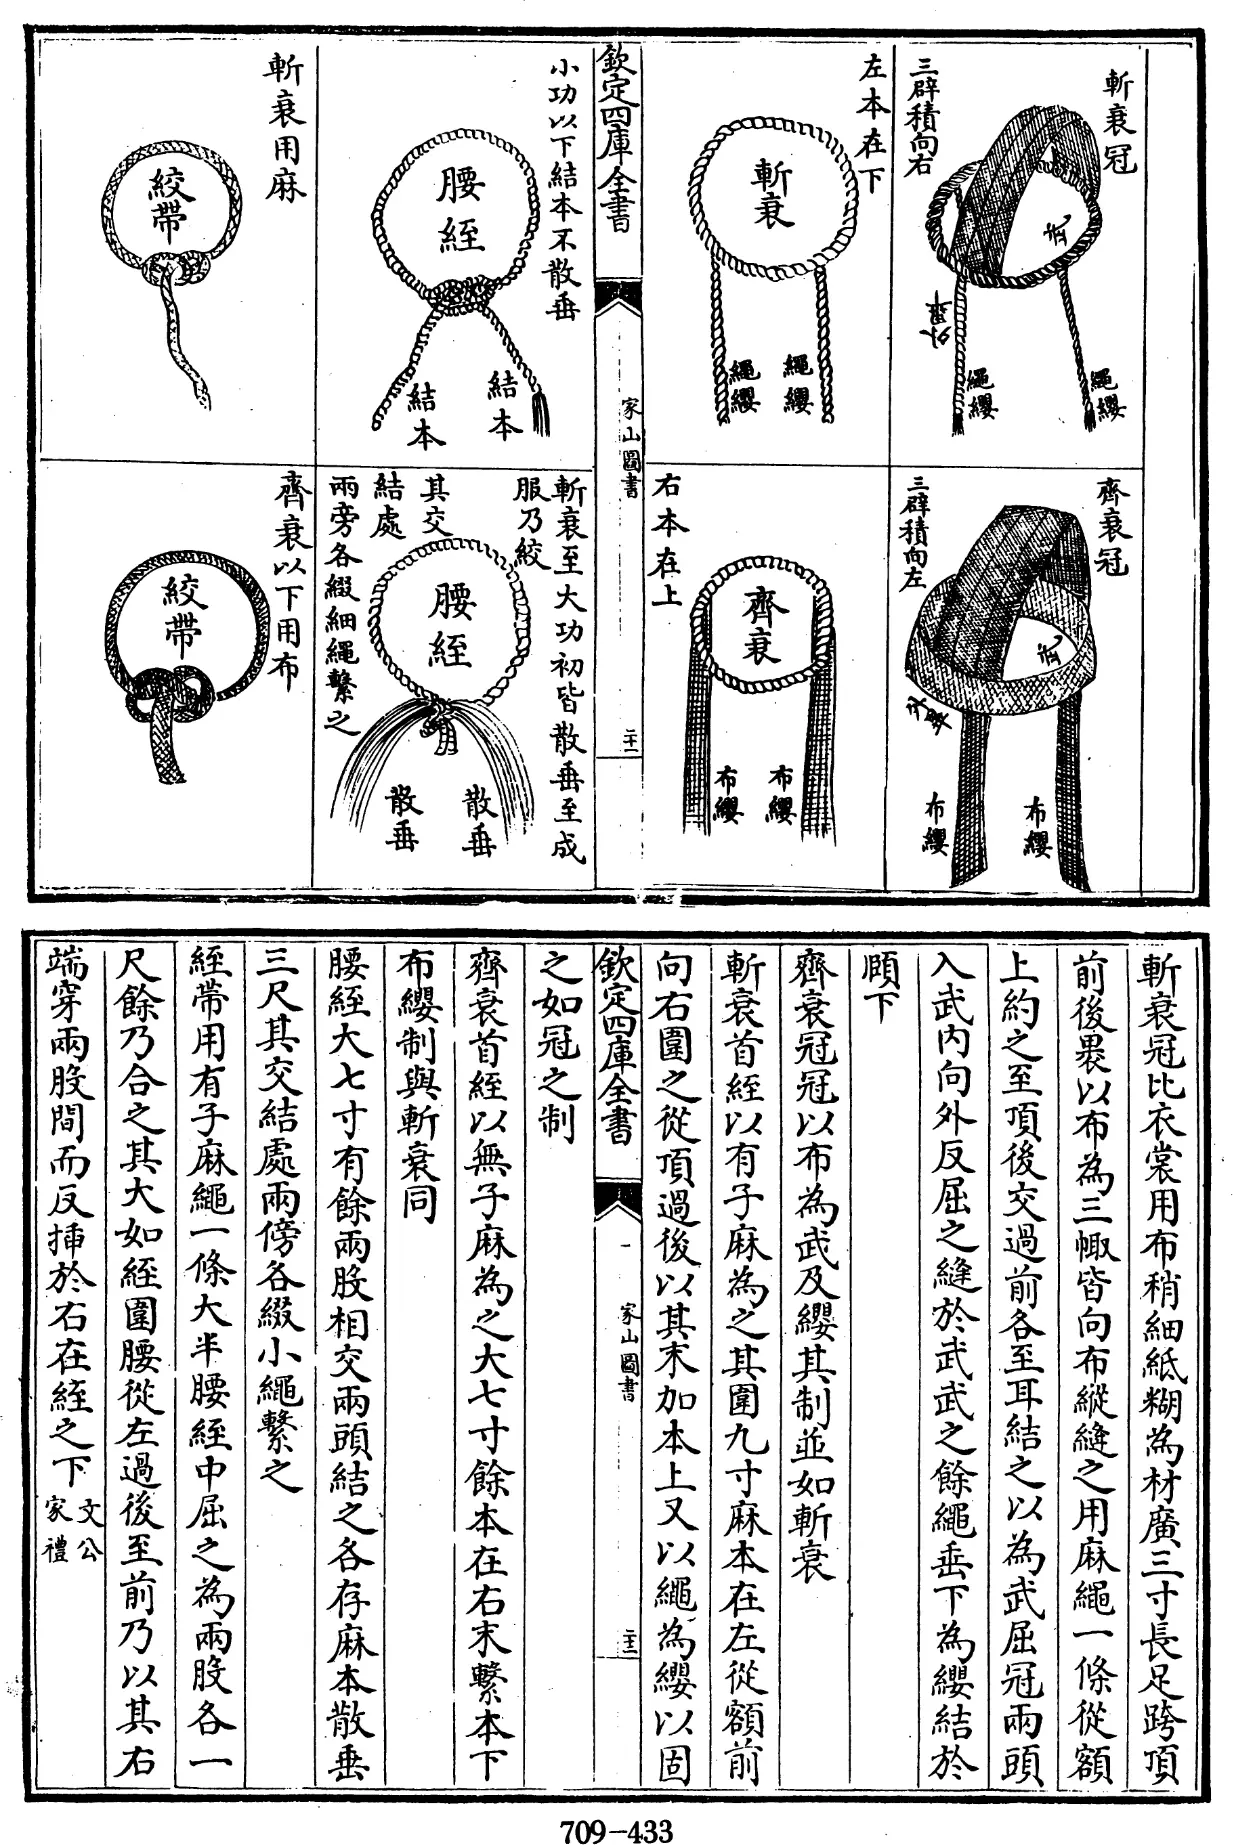 斬衰冠
三辟積向右
武
外畢
繩纓
繩纓
齊衰冠
三辟積向左
武
外畢
布纓
布纓
左本在下
斬衰
繩纓
繩纓
右本在上
齊衰
布纓
布纓
欽定四庫全書
家山圖書
二十一
小功以下結本不散垂
腰絰
結本
結本
斬衰至大功初皆散垂至成
服乃絞
其交
結處
兩旁各綴細繩繫之
腰絰
散垂
散垂
斬衰用麻
絞帶
齊衰以下用布
絞帶
斬衰冠比衣裳用布稍細紙糊為材廣三寸長足跨頂
前後褁以布為三㡇皆向布縱縫之用麻繩一條從額
上約之至頂後交過前各至耳結之以為武屈冠兩頭
入武內向外反屈之縫於武武之餘繩垂下為纓結於
頤下
齊衰冠冠以布為武及纓其制並如斬衰
斬衰首絰以有子麻為之其圍九寸麻本在左從額前
向右圍之從頂過後以其末加本上又以繩為纓以固
欽定四庫全書
家山圖書
二十二
之如冠之制
齊衰首絰以無子麻為之大七寸餘本在右末繫本下
布纓制與斬衰同
腰絰大七寸有餘兩股相交兩頭結之各存麻本散垂
三尺其交結處兩傍各綴小繩繫之
絰帶用有子麻繩一條大半腰絰中屈之為兩股各一
尺餘乃合之其大如絰圍腰從左過後至前乃以其右
端穿兩股間而反揷於右在絰之下文公
家禮
709-433